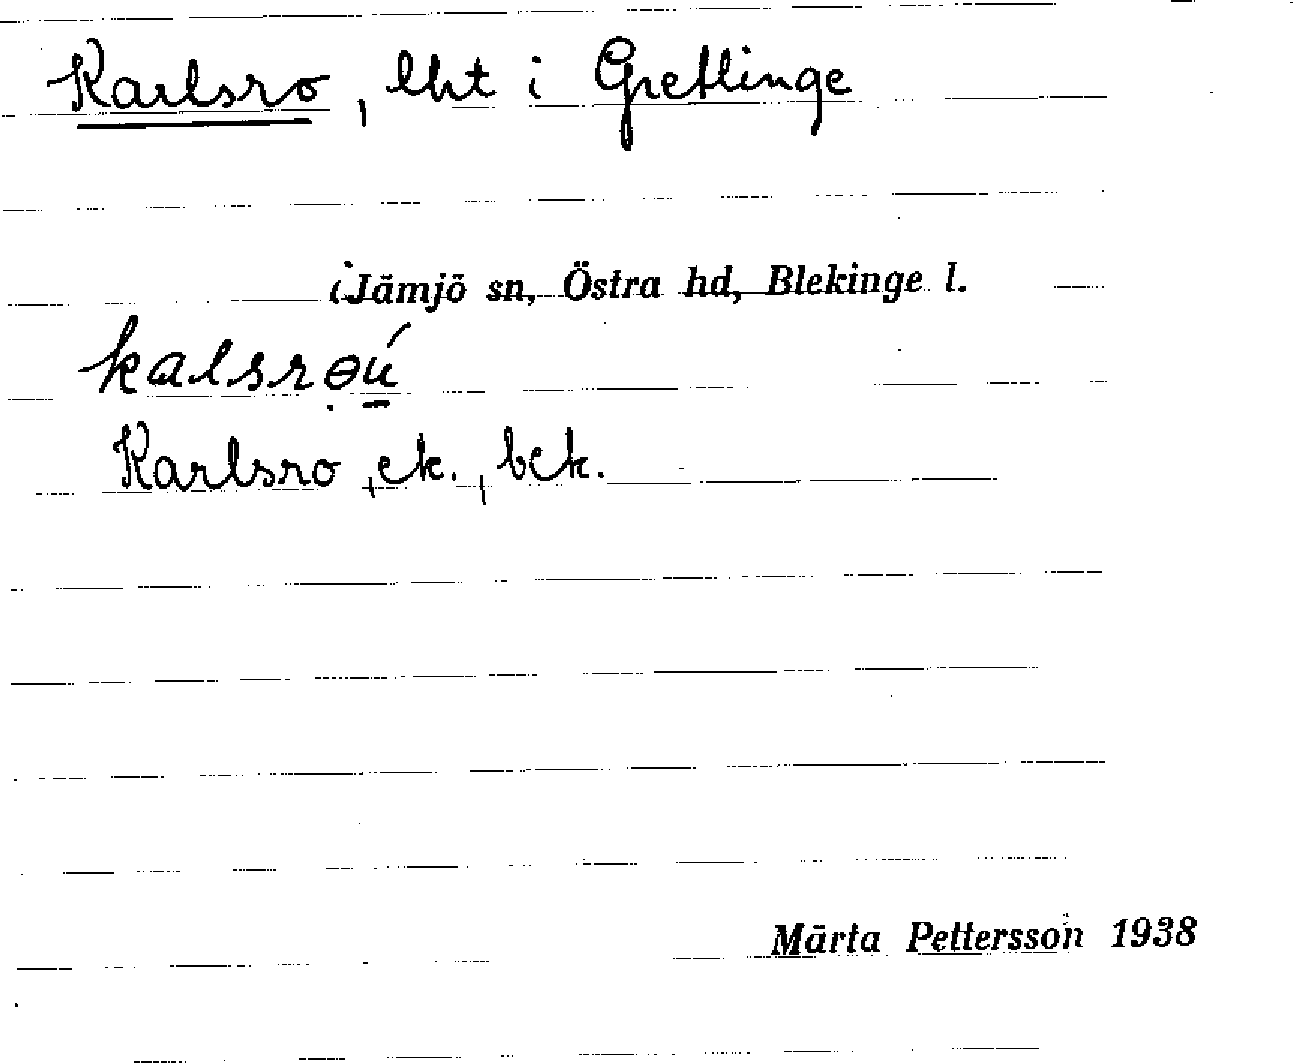 Karlsro, lht i Gretlinge
i Jämjö sn, Östra hd, Blekinge l.
kalsrɵú
Karlsro, ek., bek.
Märta Pettersson 1938